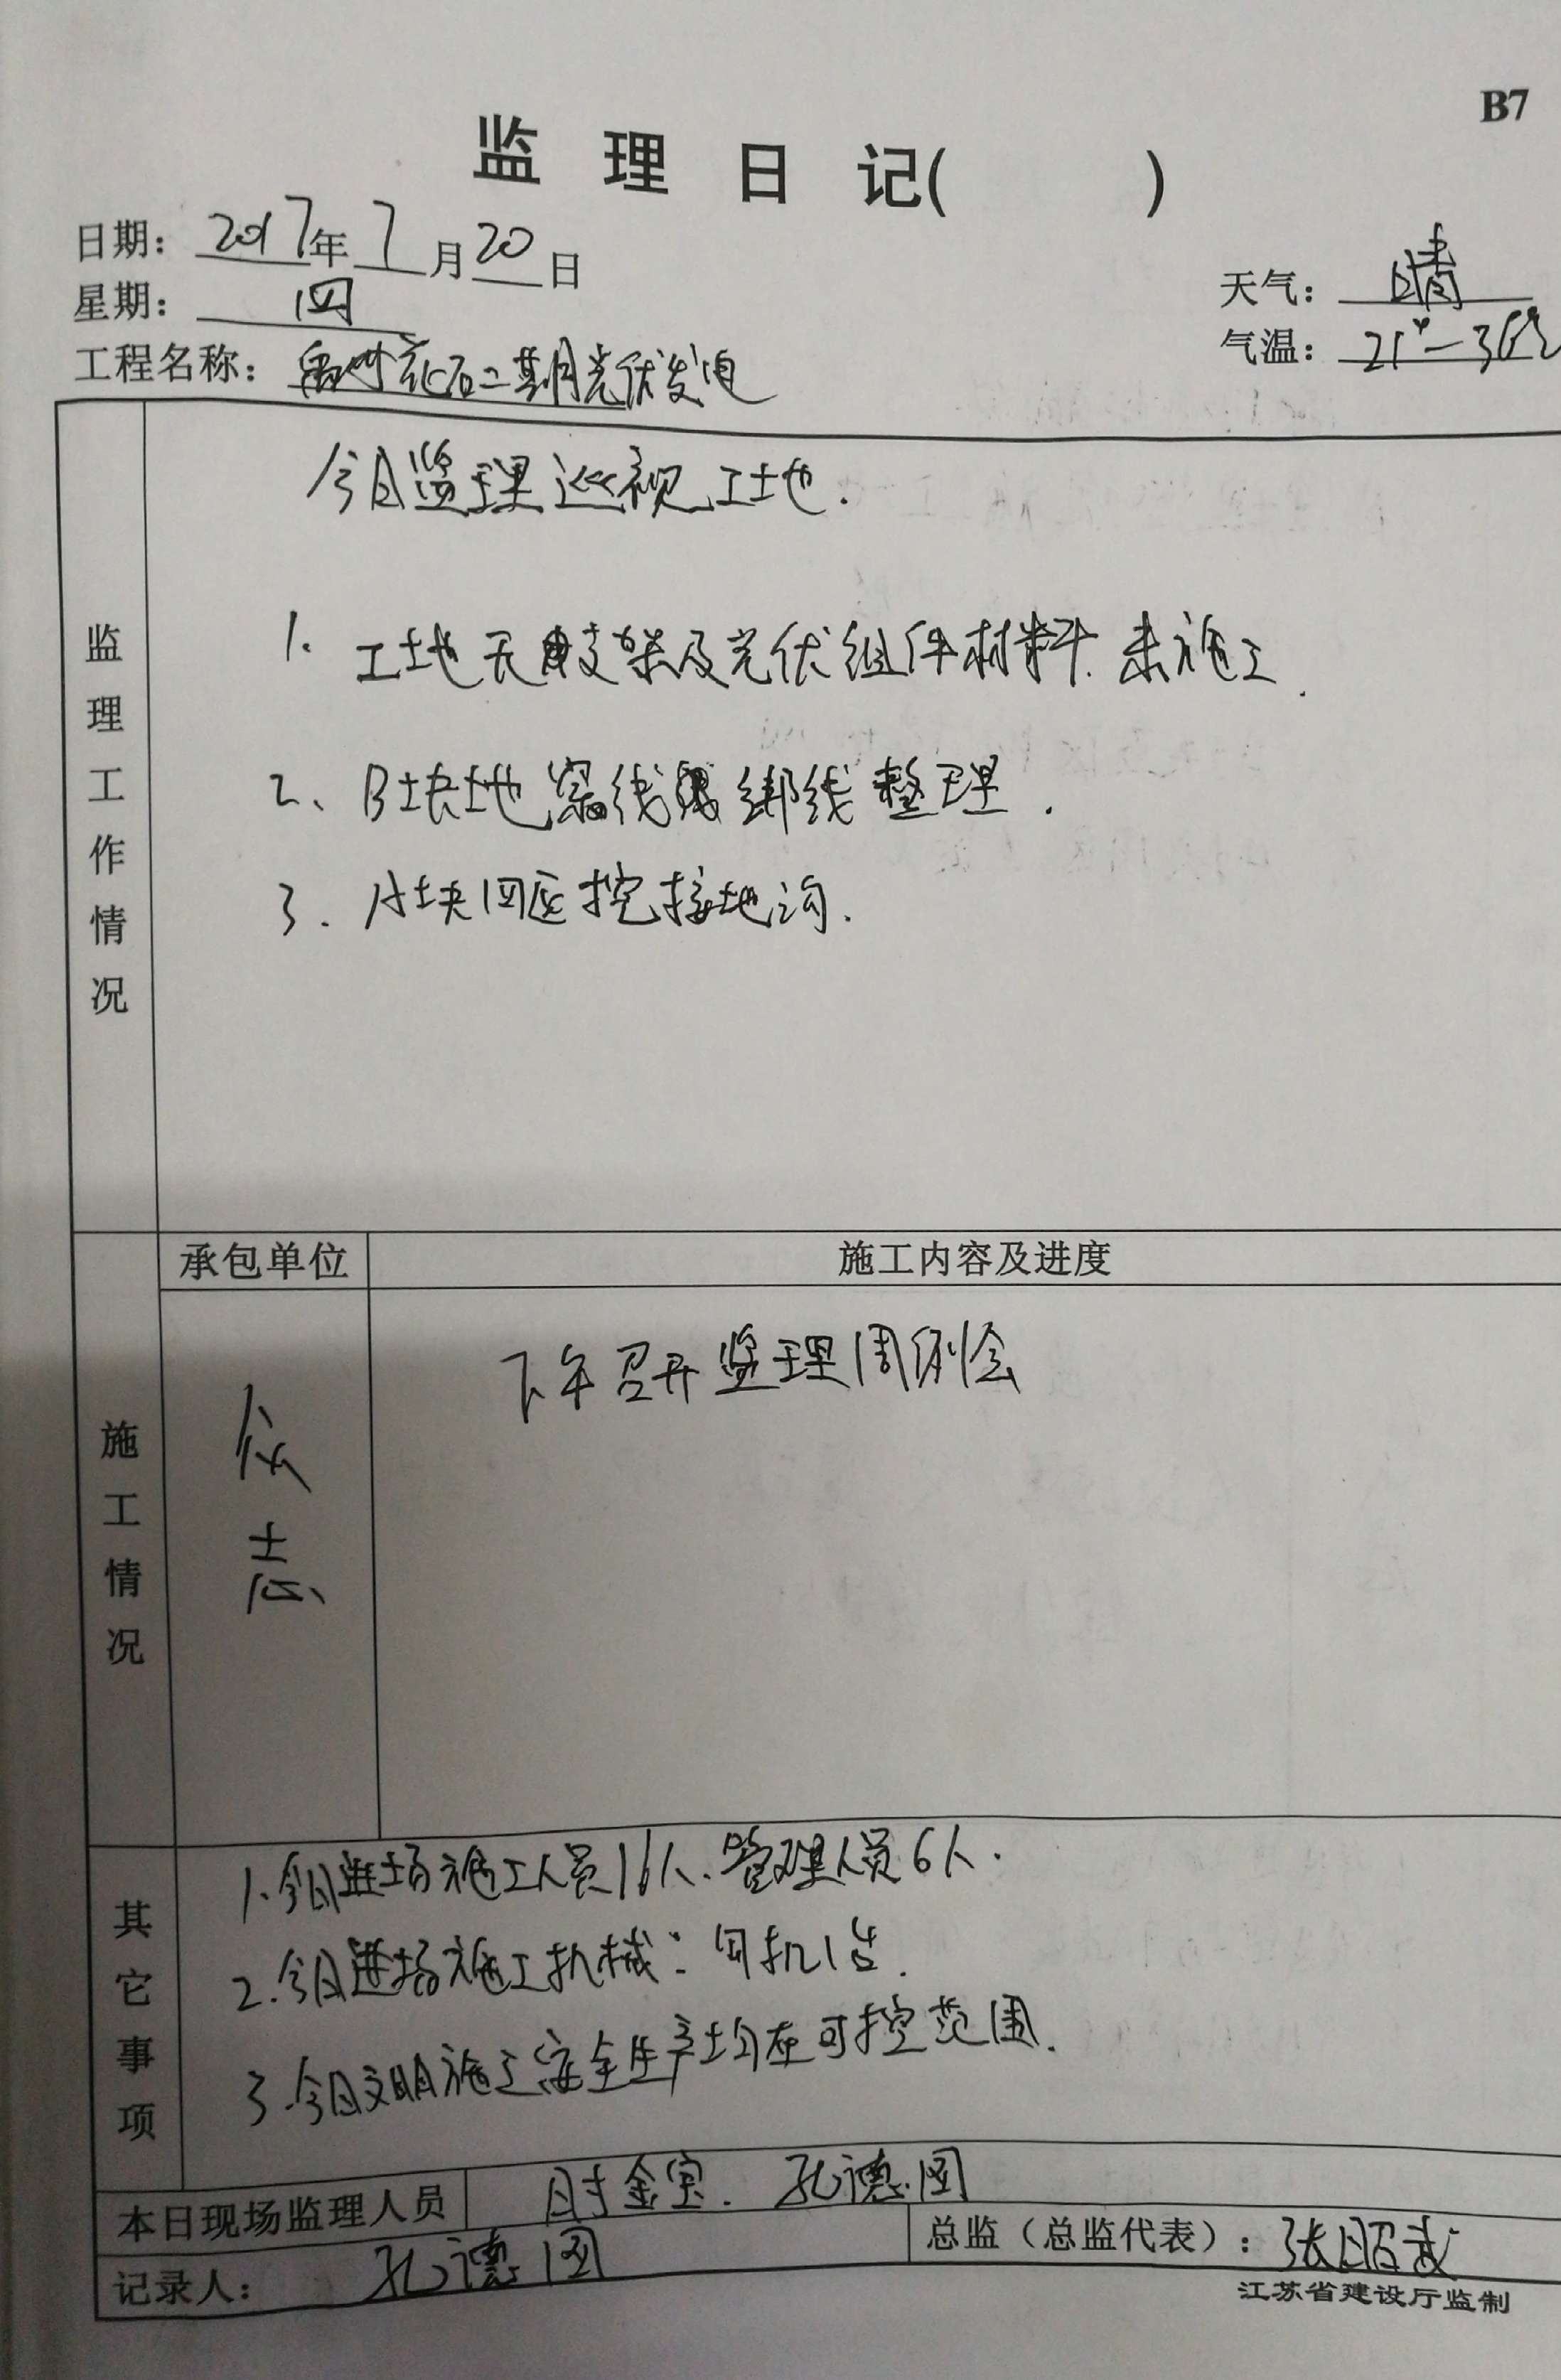 B7
监理日记( )
日期：2017年7月20日
星期：四
天气：晴
工程名称：禹州花石二期光伏发电
气温：21°-36℃
监理工作情况
今日监理巡视工地.
1. 工地无支架及光伏组件材料.未施工.
2、B块地 线 绑线整理.
3. A块四区挖接地沟.
施工情况
承包单位
施工内容及进度
众志
下午召开监理周例会
其它事项
1.今日进场施工人员16人.管理人员6人.
2.今日进场施工机械：勾机1台.
3.今日文明施工安全生产均在可控范围.
本日现场监理人员
时金宝. 孔德图
记录人：
孔德图
总监（总监代表）：张昭武
江苏省建设厅监制